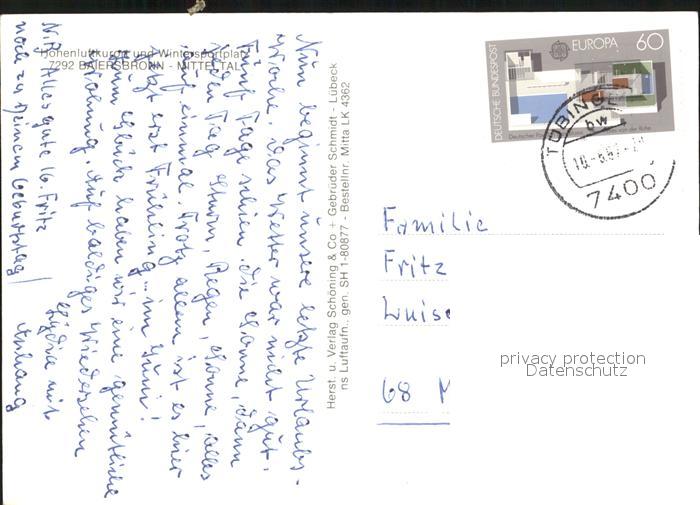 Höhenluftkurort und Wintersportplatz
7292 BAIERSBRONN - MITTELTAL
Nun beginnt unsere letzte Urlaubs-
woche. Das Wetter war nicht gut.
Fünf Tage schien die Sonne, dann
jeden Tag Sturm, Regen, Sonne, alles
auf einmal. Trotz allem ist es hier
jetzt erst Frühling im Juni!
haben wir eine gemütliche
Wohnung. Auf baldiges Wiedersehen
Lydia mit
Anhang
N.B. Alles gute lb. Fritz
noch zu Deinem Geburtstag!
Herst. u. Verlag Schöning & Co + Gebrüder Schmidt - Lübeck
ns Luftaufn., gen. SH 1-80877 - Bestellnr. Mitta LK 4362
DEUTSCHE BUNDESPOST
EUROPA 60
TÜBINGEN
bw
7400
Familie
Fritz
Luise
68 M
privacy protection
Datenschutz